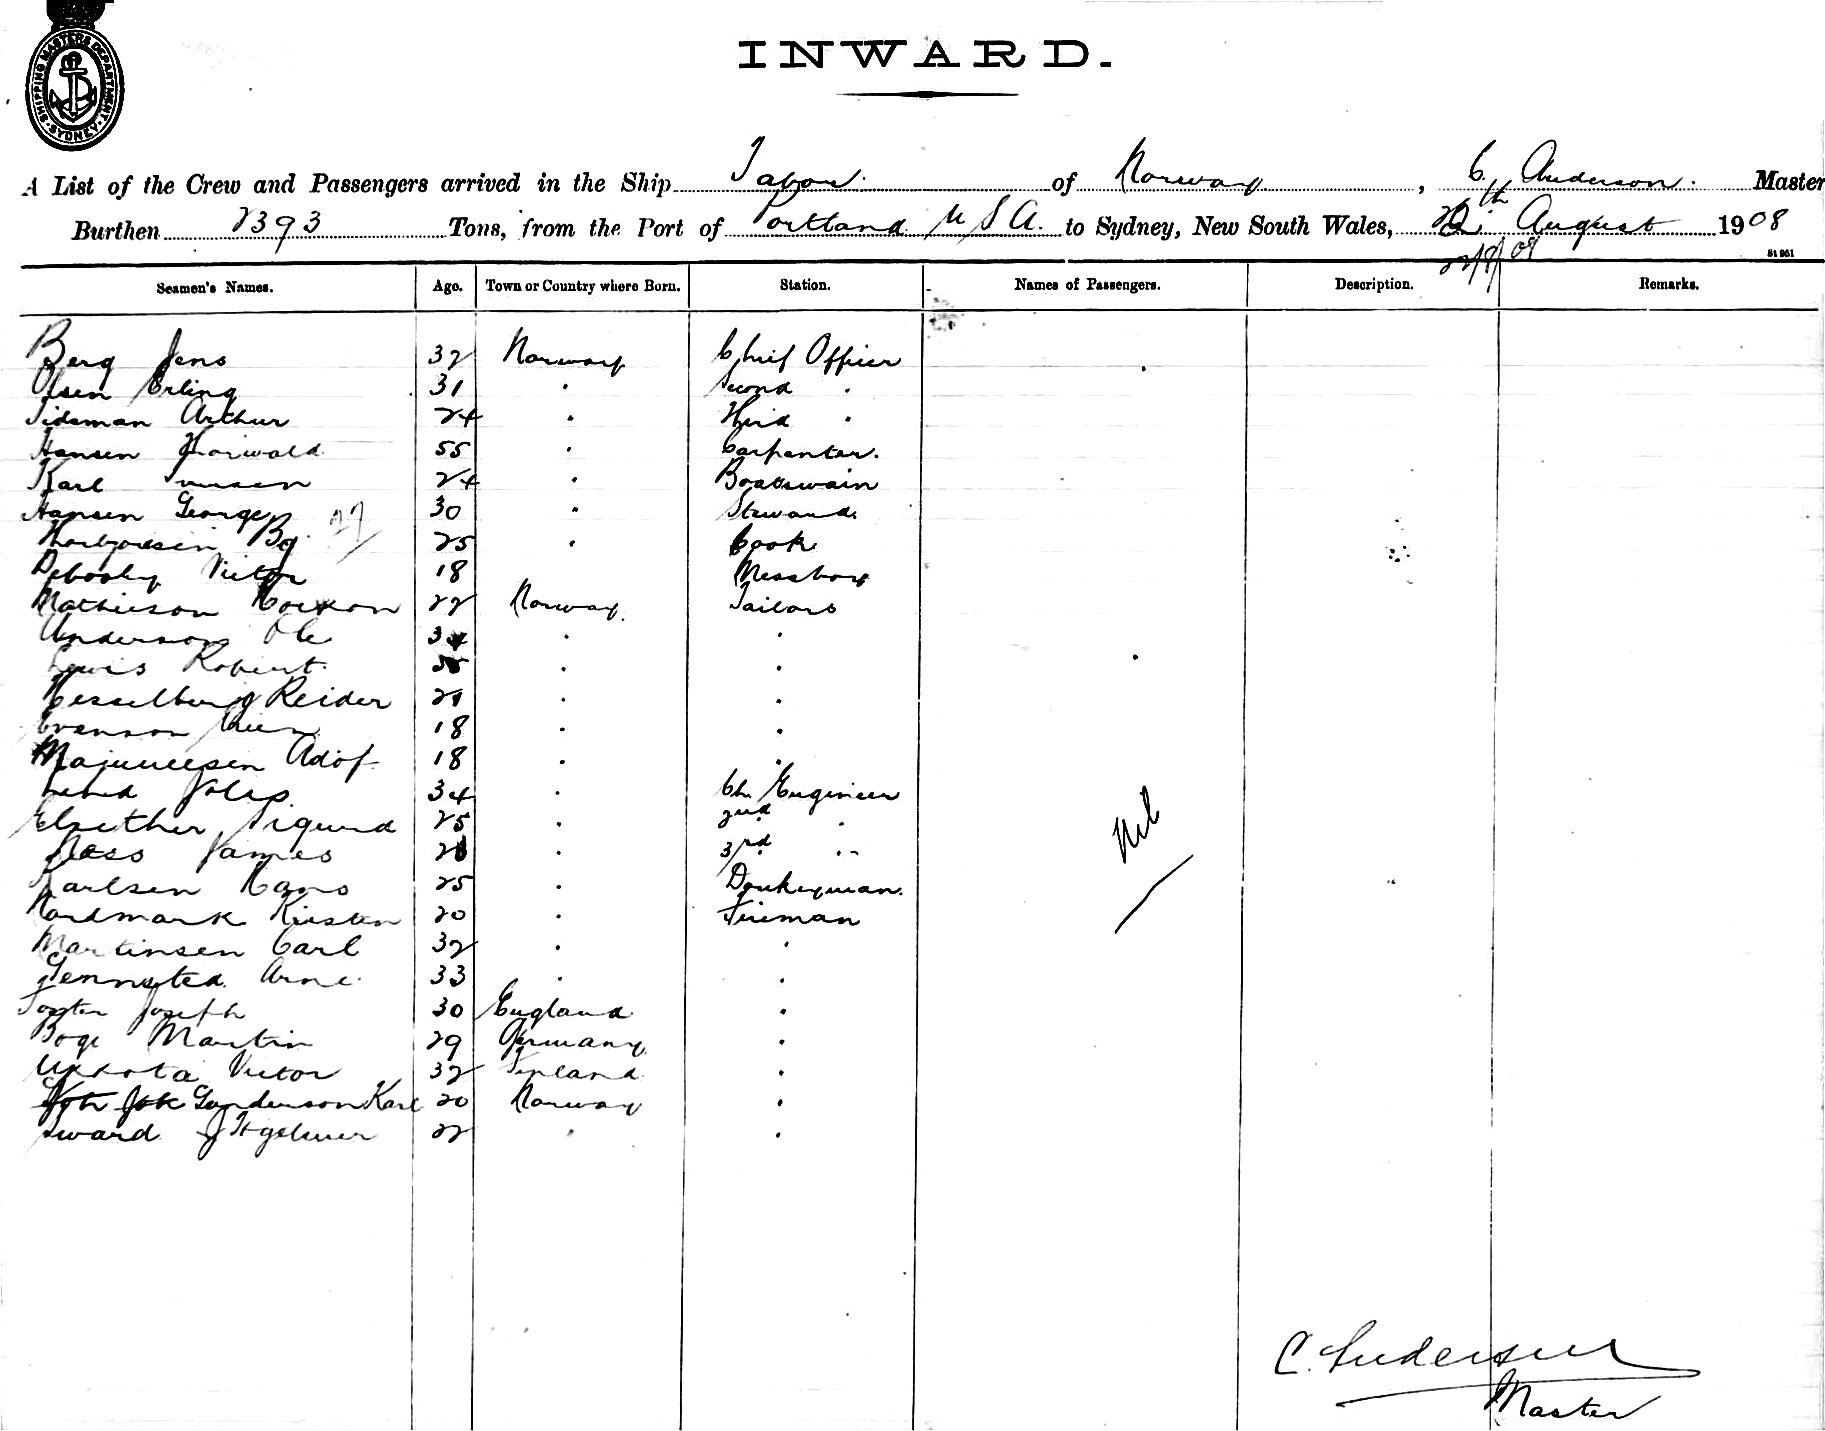 SHIPPING MASTERS DEPARTMENT
SYDNEY
INWARD.
A List of the Crew and Passengers arrived in the Ship Tabor of Norway, C Anderson. Master
Burthen 2393 Tons, from the Port of Portland U S A. to Sydney, New South Wales, August 1908
22/8/08
Seamen's Names. Age. Town or Country where Born. Station. Names of Passengers. Description. Remarks.
Berg Jens 32 Norway Chief Officer
Olsen Erling 31 " Second "
Tideman Arthur 24 " Third "
Hansen Thorwald 55 " Carpenter.
Karl Iversen 24 " Boatswain
Hansen George 30 " Steward
27
25 " Cook
Victor 18 Messboy
Mathieson 22 Norway. Sailors
Anderson Ole " "
Lewis Robert " "
Hesselberg Reider 21 " "
Evenson 18 " "
Adof 18 " "
34 " Ch. Engineer
Elsether Sigurd 25 " 2nd "
Ness James " 3rd "
Karlsen Hans 25 " Donkeyman.
Nordmark Kristen 20 " Fireman
Martinsen Carl 32 " "
Arne 33 " "
Joseph 30 England "
Martin 29 Germany "
Victor 32 Finland "
Gunderson Karl 20 Norway "
Sward 22 " "
Nil
C. Andersen
Master